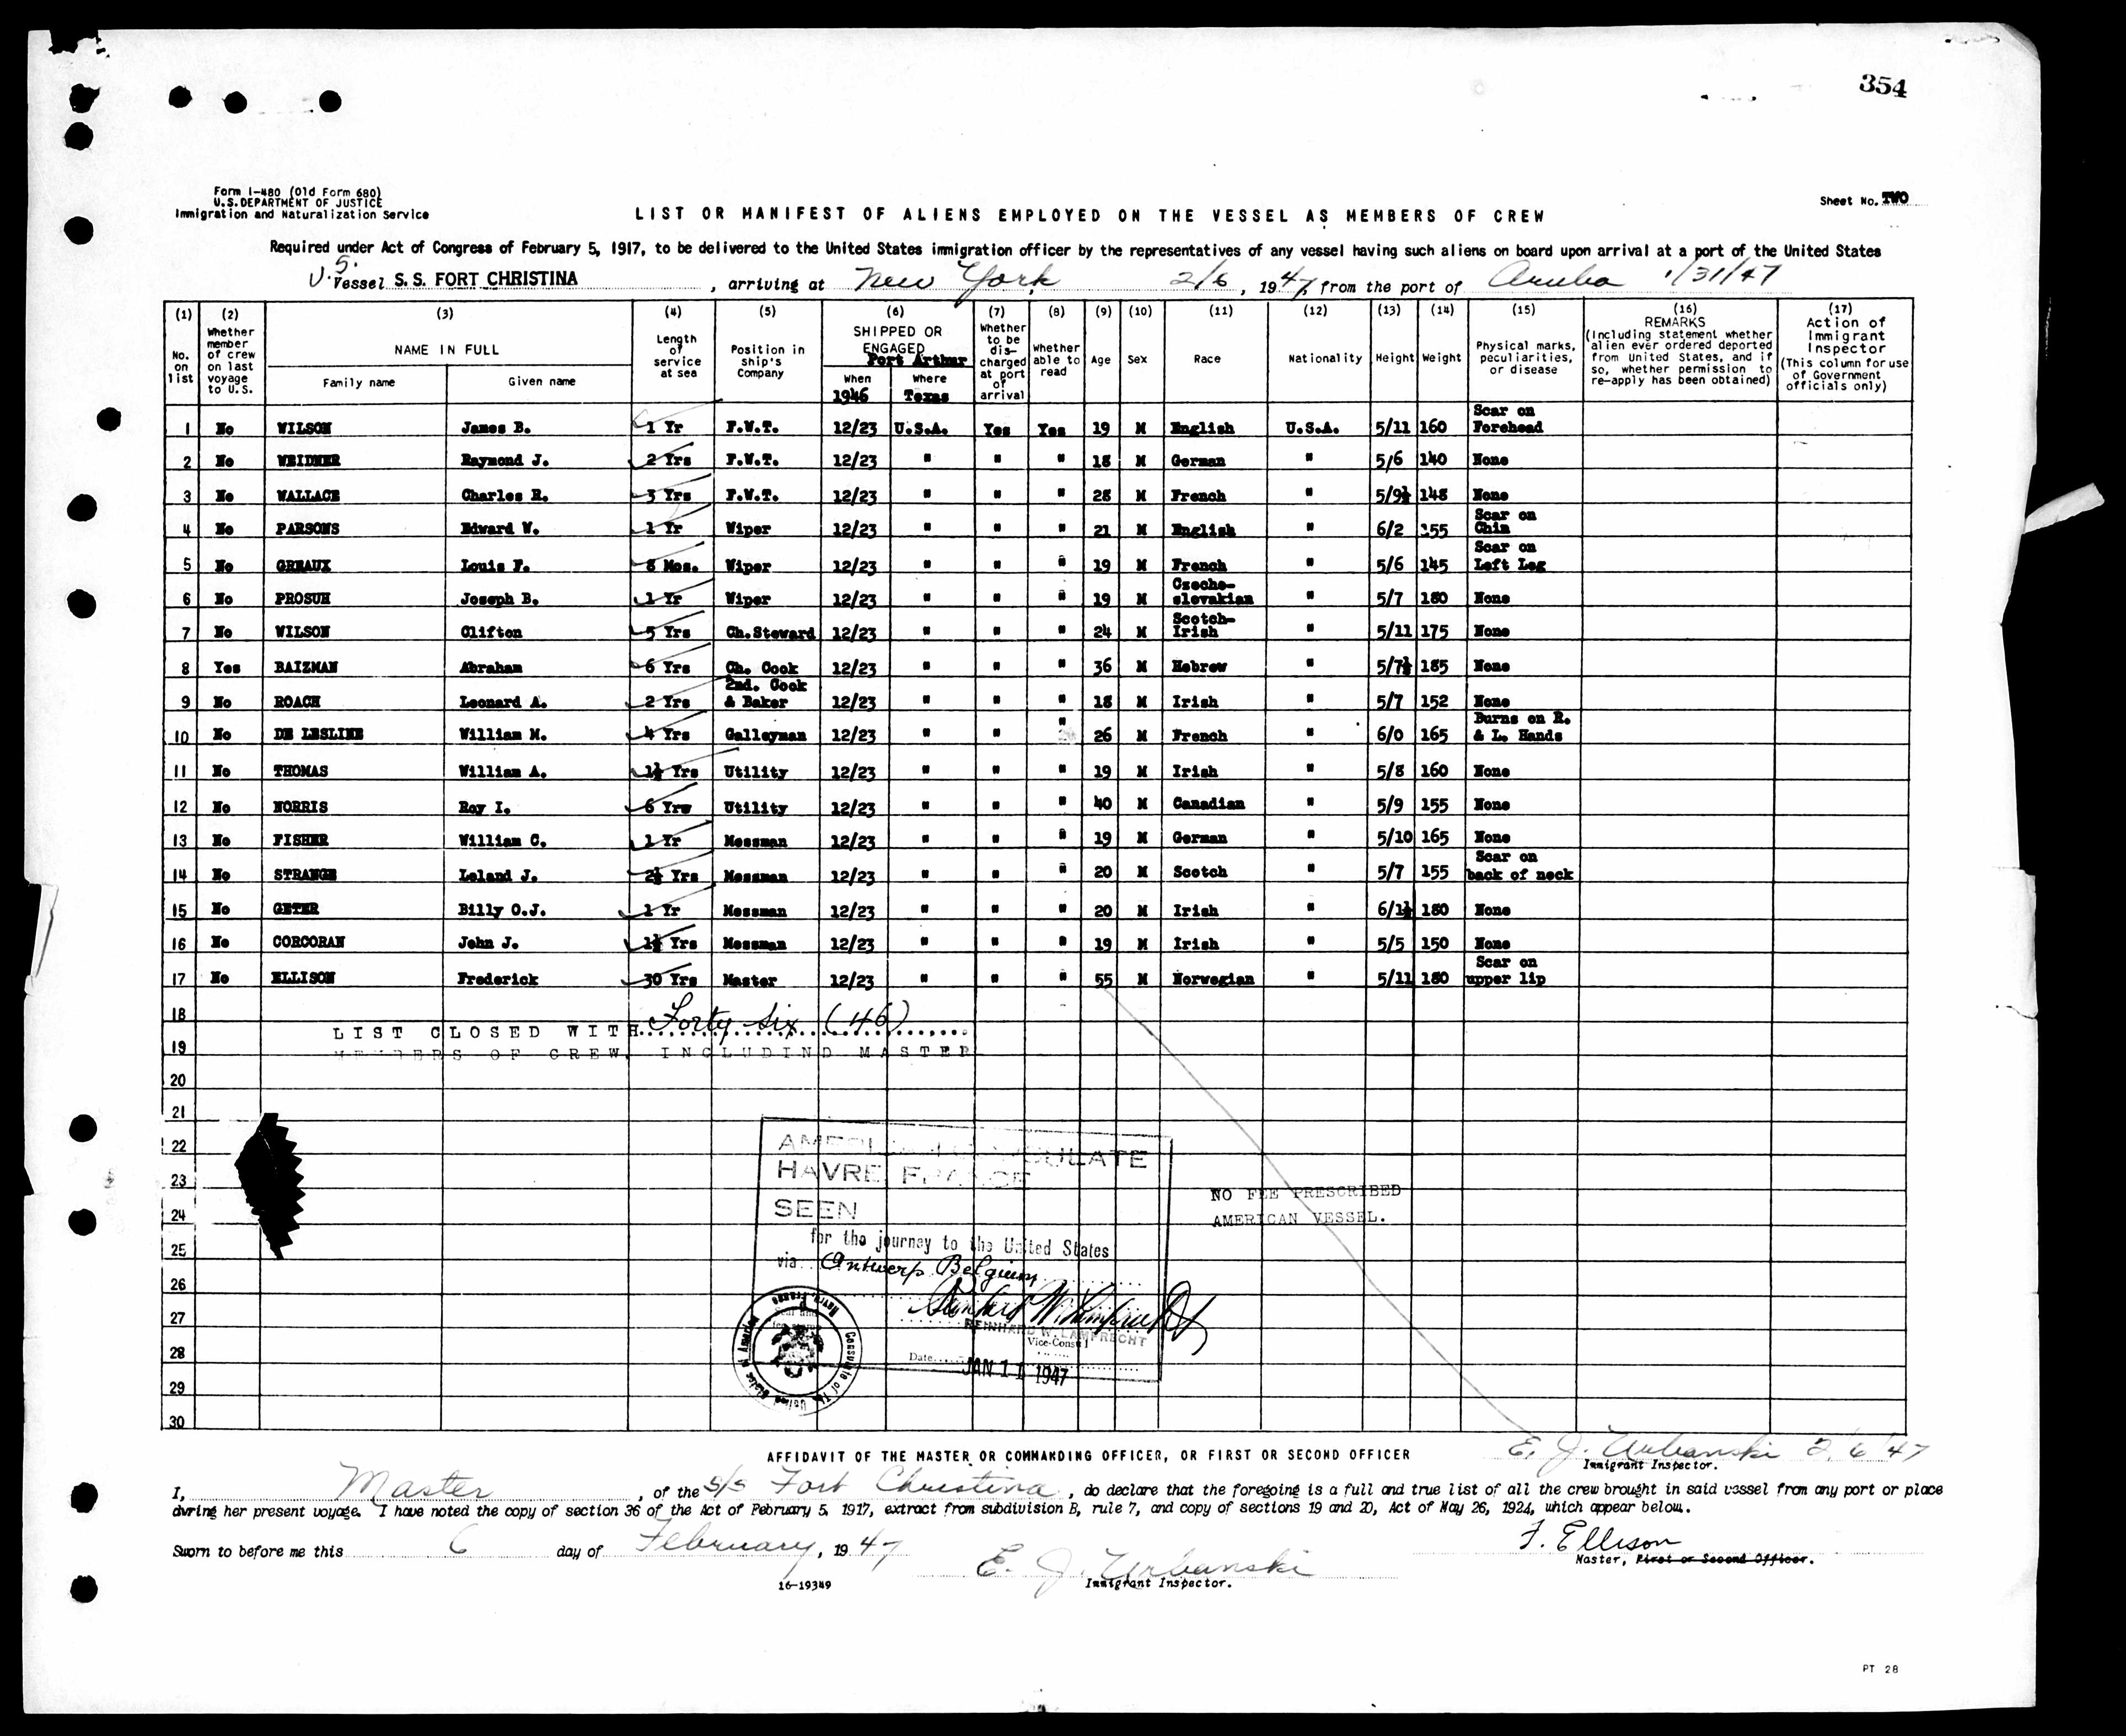 354
Form I-480 (Old Form 680)
U.S. DEPARTMENT OF JUSTICE
Immigration and Naturalization Service
Sheet No. TWO
LIST OR MANIFEST OF ALIENS EMPLOYED ON THE VESSEL AS MEMBERS OF CREW
Required under Act of Congress of February 5, 1917, to be delivered to the United States immigration officer by the representatives of any vessel having such aliens on board upon arrival at a port of the United States
U.S. Vessel S. S. FORT CHRISTINA, arriving at New York 2/6, 1947, from the port of Aruba 1/31/47
(1) (2) (3) (4) (5) (6) (7) (8) (9) (10) (11) (12) (13) (14) (15) (16) (17)
No. on list
Whether member of crew on last voyage to U.S.
NAME IN FULL
Family name Given name
Length of service at sea
Position in ship's Company
SHIPPED OR ENGAGED
Port Arthur
When Where
1946 Texas
Whether to be discharged at port of arrival
Whether able to read
Age
Sex
Race
Nationality
Height
Weight
Physical marks, peculiarities, or disease
REMARKS
(Including statement whether alien ever ordered deported from United States, and if so, whether permission to re-apply has been obtained)
Action of Immigrant Inspector
(This column for use of Government officials only)
1 No WILSON James B. 1 Yr F.W.T. 12/23 U.S.A. Yes Yes 19 M English U.S.A. 5/11 160 Scar on Forehead
2 No WEIDNER Raymond J. 2 Yrs F.W.T. 12/23 " " " 18 M German " 5/6 140 None
3 No WALLACE Charles R. 3 Yrs F.W.T. 12/23 " " " 28 M French " 5/9½ 148 None
4 No PARSONS Edward W. 1 Yr Wiper 12/23 " " " 21 M English " 6/2 155 Scar on Chin
5 No GREAUX Louis F. 8 Mos. Wiper 12/23 " " " 19 M French " 5/6 145 Scar on Left Leg
6 No PROSUH Joseph B. 1 Yr Wiper 12/23 " " " 19 M Czecho-slovakian " 5/7 180 None
7 No WILSON Clifton 5 Yrs Ch.Steward 12/23 " " " 24 M Scotch-Irish " 5/11 175 None
8 Yes BAIZMAN Abraham 6 Yrs Ch. Cook 12/23 " " " 36 M Hebrew " 5/7½ 185 None
9 No ROACH Leonard A. 2 Yrs 2nd. Cook & Baker 12/23 " " " 18 M Irish " 5/7 152 None
10 No DE LESLINE William M. 4 Yrs Galleyman 12/23 " " " 26 M French " 6/0 165 Burns on R. & L. Hands
11 No THOMAS William A. 1½ Yrs Utility 12/23 " " " 19 M Irish " 5/8 160 None
12 No NORRIS Roy I. 6 Yrs Utility 12/23 " " " 40 M Canadian " 5/9 155 None
13 No FISHER William C. 1 Yr Messman 12/23 " " " 19 M German " 5/10 165 None
14 No STRANGE Leland J. 2½ Yrs Messman 12/23 " " " 20 M Scotch " 5/7 155 Scar on back of neck
15 No GETER Billy O.J. 1 Yr Messman 12/23 " " " 20 M Irish " 6/1½ 180 None
16 No CORCORAN John J. 1½ Yrs Messman 12/23 " " " 19 M Irish " 5/5 150 None
17 No ELLISON Frederick 30 Yrs Master 12/23 " " " 55 M Norwegian " 5/11 180 Scar on upper lip
18
LIST CLOSED WITH Forty Six (46)
19
MEMBERS OF CREW INCLUDIND MASTER
20
21
22
AMERICAN CONSULATE
23
HAVRE FRANCE
NO FEE PRESCRIBED
24
SEEN
AMERICAN VESSEL.
25
for the journey to the United States
via Antwerp Belgium
26
27
REINHARD W. LAMPRECHT
Vice-Consul
28
Date JAN 11 1947
Consulate of The United States of America Havre, France
29
30
AFFIDAVIT OF THE MASTER OR COMMANDING OFFICER, OR FIRST OR SECOND OFFICER
E. J. Urbanski 2/6/47
Immigrant Inspector.
I, Master, of the S/S Fort Christina, do declare that the foregoing is a full and true list of all the crew brought in said vessel from any port or place
during her present voyage. I have noted the copy of section 36 of the Act of February 5, 1917, extract from subdivision B, rule 7, and copy of sections 19 and 20, Act of May 26, 1924, which appear below.
F. Ellison
Sworn to before me this 6 day of February, 1947
Master, First or Second Officer.
E. J. Urbanski
16-19349
Immigrant Inspector.
PT 28